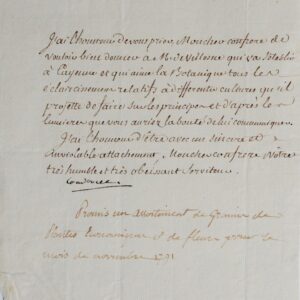 J'ai l'honneur de vous prier, Mon cher confrere de
vouloir bien donner a M. de Villerme qui va s'etablir
a Cayenne et qui aime la Botanique tous les
eclaircissemens relatifs à differentes cultures que il
projette de faire sur les principes et d'après les
lumieres que vous auriez la bonté de lui communiquer.
J'ai l'honneur d'être avec un sincere et
inviolable attachement, Mon cher confrere Votre
très humble et très obeissant Serviteur
Promis un assortiment de Graines de
Plantes Economiques et de fleurs pour le
mois de novembre